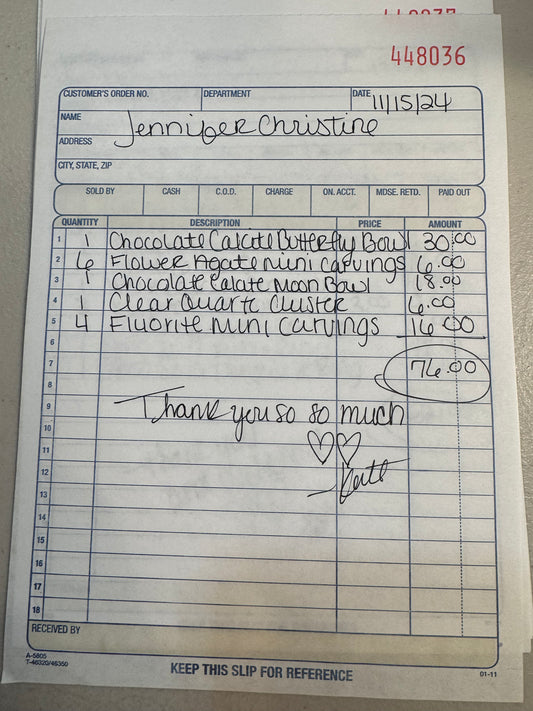 448036
CUSTOMER'S ORDER NO. DEPARTMENT DATE 11/15/24
NAME Jennifer Christine
ADDRESS
CITY, STATE, ZIP
SOLD BY CASH C.O.D. CHARGE ON. ACCT. MDSE. RETD. PAID OUT
QUANTITY DESCRIPTION PRICE AMOUNT
1 1 Chocolate Calcite Butterfly Bowl 30.00
2 6 Flower Agate mini carvings 6.00
3 1 Chocolate Calate Moon Bowl 18.00
4 1 Clear Quartz Cluster 6.00
5 4 Fluorite mini carvings 16.00
6
7 76.00
8
9 Thank you so so much
10
11
12
13
14
15
16
17
18
RECEIVED BY
A-5805
T-46320/46350
KEEP THIS SLIP FOR REFERENCE
01-11